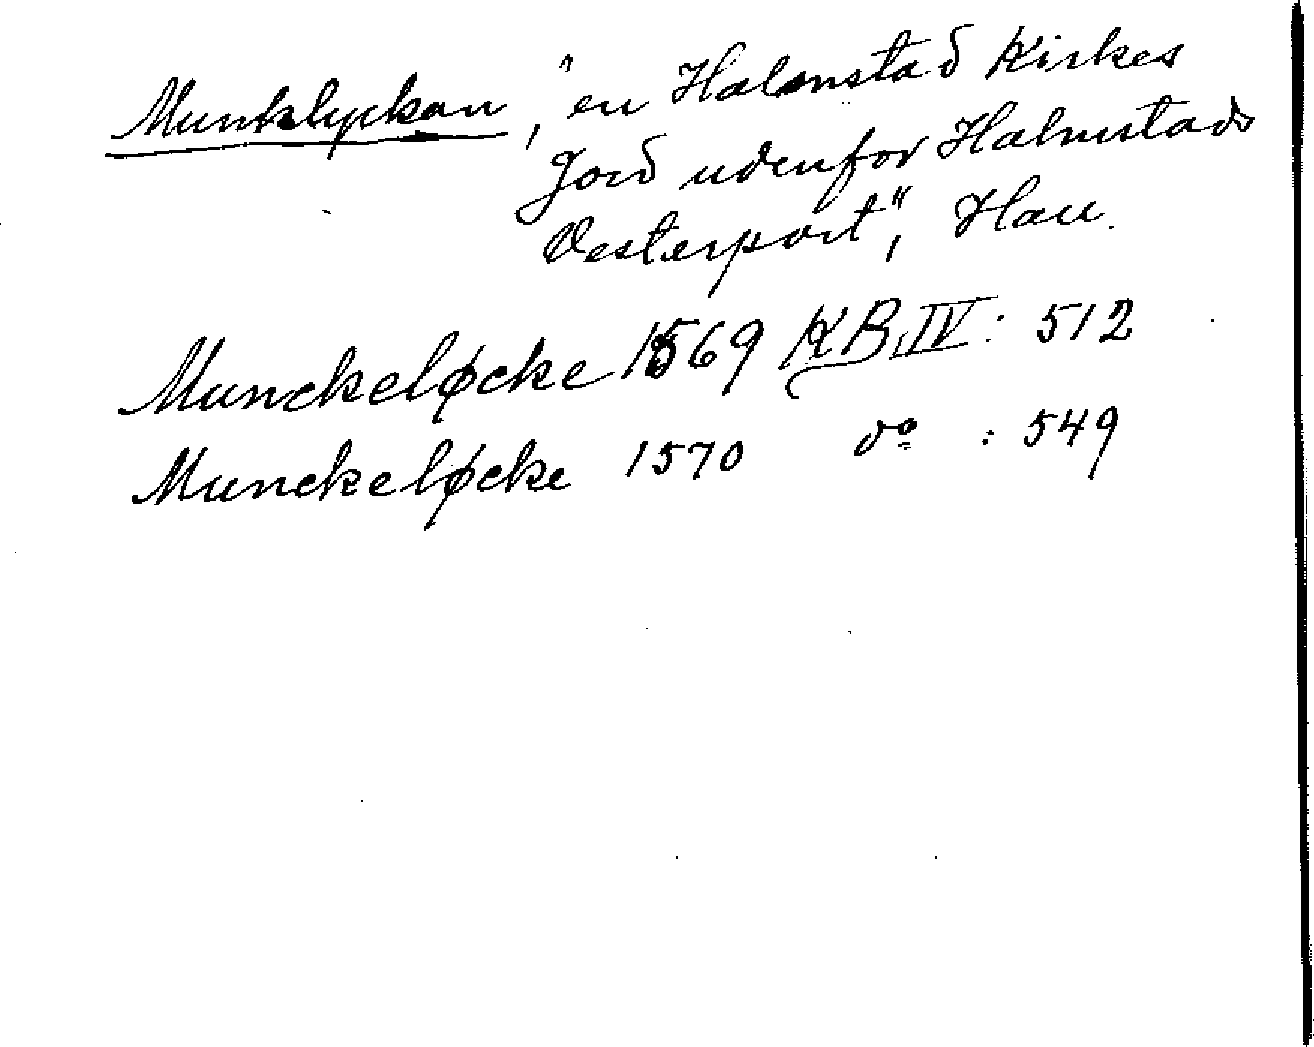 Munklyckan, "en Halmstad Kirkes
Jord udenfor Halmstads
Østerport", Hall.
Munckeløcke 1569 KB.IV: 512
Munckeløcke 1570 do : 549